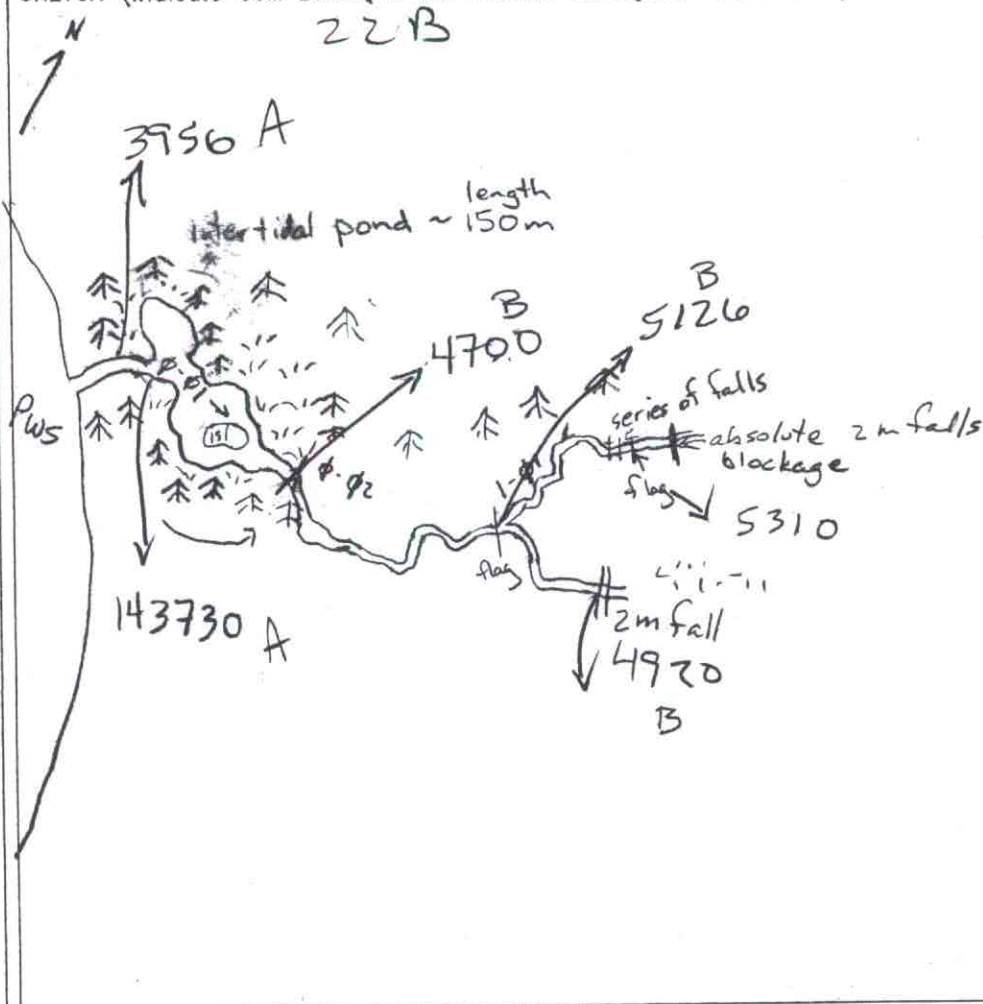 22B
N
3956 A
length
intertidal pond ~ 150m
B
4700
B
5126
series of falls
absolute 2m falls
blockage
flag
5310
PWS
151
Ø
Ø
Ø.Ø2
Ø
flag
2m fall
4920
B
143730 A